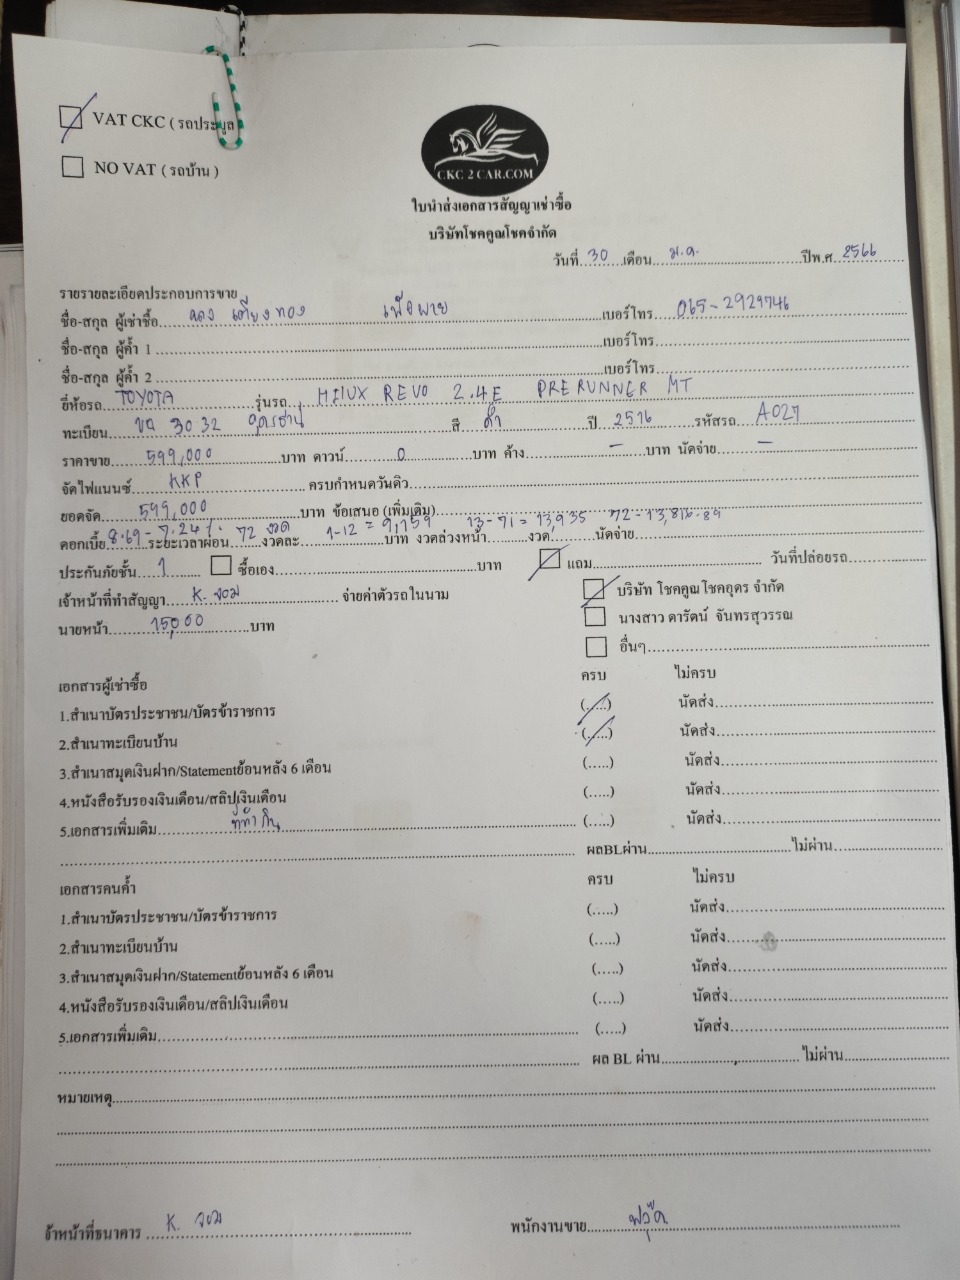 VAT CKC ( รถประมูล
NO VAT ( รถบ้าน )
CKC 2 CAR.COM
ใบนำส่งเอกสารสัญญาเช่าซื้อ
บริษัทโชคคูณโชคจำกัด
วันที่ 30 เดือน ม.ค. ปีพ.ศ. 2566
รายรายละเอียดประกอบการขาย
ชื่อ-สกุล ผู้เช่าซื้อ เตียงทอง เบอร์โทร 065-2929746
ชื่อ-สกุล ผู้ค้ำ 1 เบอร์โทร
ชื่อ-สกุล ผู้ค้ำ 2 เบอร์โทร
ยี่ห้อรถ TOYOTA รุ่นรถ HILUX REVO 2.4E PRERUNNER MT
ทะเบียน 3032 อุดรธานี สี ดำ ปี 2516 รหัสรถ A027
ราคาขาย 599,000 บาท ดาวน์ 0 บาท ค้าง - บาท นัดจ่าย -
จัดไฟแนนซ์ KKP ครบกำหนดวันดิว
ยอดจัด 599,000 บาท ข้อเสนอ (เพิ่มเติม)
ดอกเบี้ย 8.69 - 7.24 % ระยะเวลาผ่อน 72 งวด งวดละ 1-12 = 9,159 บาท 13-71 = 13,935 72 - 13,816.84 งวดล่วงหน้า งวด นัดจ่าย
ประกันภัยชั้น 1 ซื้อเอง บาท แถม วันที่ปล่อยรถ
เจ้าหน้าที่ทำสัญญา K. จอม จ่ายค่าตัวรถในนาม บริษัท โชคคูณโชคอุดร จำกัด
นายหน้า 15,000 บาท นางสาว ดารัตน์ จันทรสุวรรณ
อื่นๆ
เอกสารผู้เช่าซื้อ ครบ ไม่ครบ
1.สำเนาบัตรประชาชน/บัตรข้าราชการ (.....) นัดส่ง
2.สำเนาทะเบียนบ้าน (.....) นัดส่ง
3.สำเนาสมุดเงินฝาก/Statementย้อนหลัง 6 เดือน (.....) นัดส่ง
4.หนังสือรับรองเงินเดือน/สลิปเงินเดือน (.....) นัดส่ง
5.เอกสารเพิ่มเติม (.....) นัดส่ง
ผลBLผ่าน ไม่ผ่าน
เอกสารคนค้ำ ครบ ไม่ครบ
1.สำเนาบัตรประชาชน/บัตรข้าราชการ (.....) นัดส่ง
2.สำเนาทะเบียนบ้าน (.....) นัดส่ง
3.สำเนาสมุดเงินฝาก/Statementย้อนหลัง 6 เดือน (.....) นัดส่ง
4.หนังสือรับรองเงินเดือน/สลิปเงินเดือน (.....) นัดส่ง
5.เอกสารเพิ่มเติม (.....) นัดส่ง
ผล BL ผ่าน ไม่ผ่าน
หมายเหตุ
จ้าหน้าที่ธนาคาร K. จอม พนักงานขาย